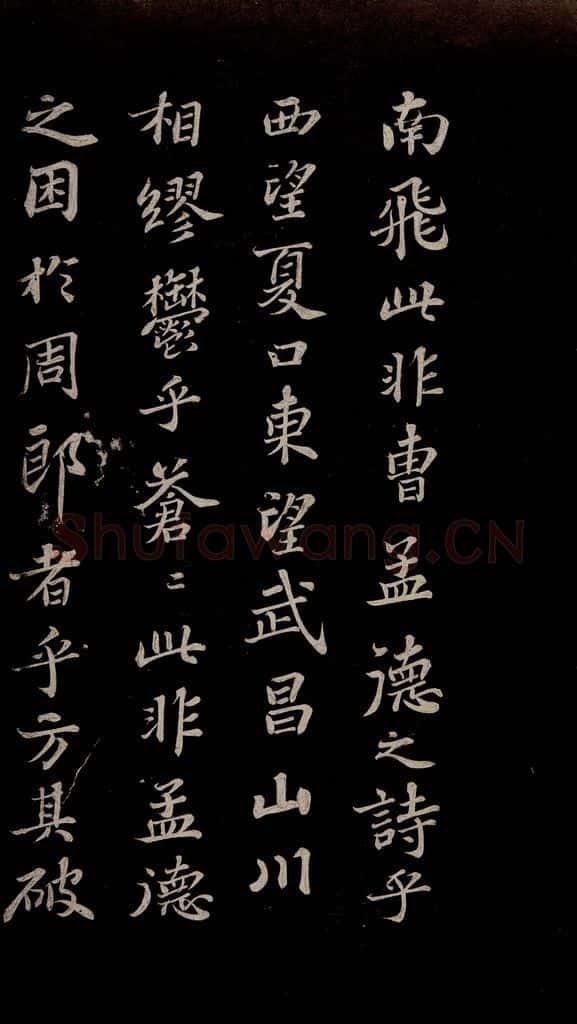 南飛此非曹孟德之詩乎
西望夏口東望武昌山川
相繆鬱乎蒼〻此非孟德
之困於周郎者乎方其破
Shufawang.CN